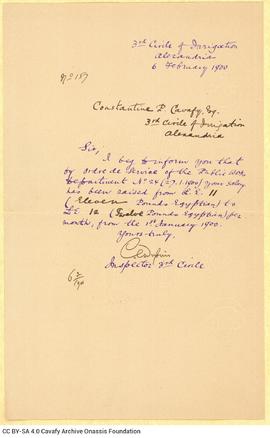 3rd Circle of Irrigation
Alexandria
6 February 1900
No 187
Constantine P. Cavafy, Esq.
3rd Circle of Irrigation
Alexandria
Sir,
I beg to inform you that by
ordre de service of the Public Works
Department No 24 (27.1.1900) your salary
has been raised from L.E. 11
(Eleven Pounds Egyptian) to
L.E. 12 (Twelve Pounds Egyptian) per
month, from the 1st January 1900.
Yours truly,
Inspector 3rd Circle
CC BY-SA 4.0 Cavafy Archive Onassis Foundation